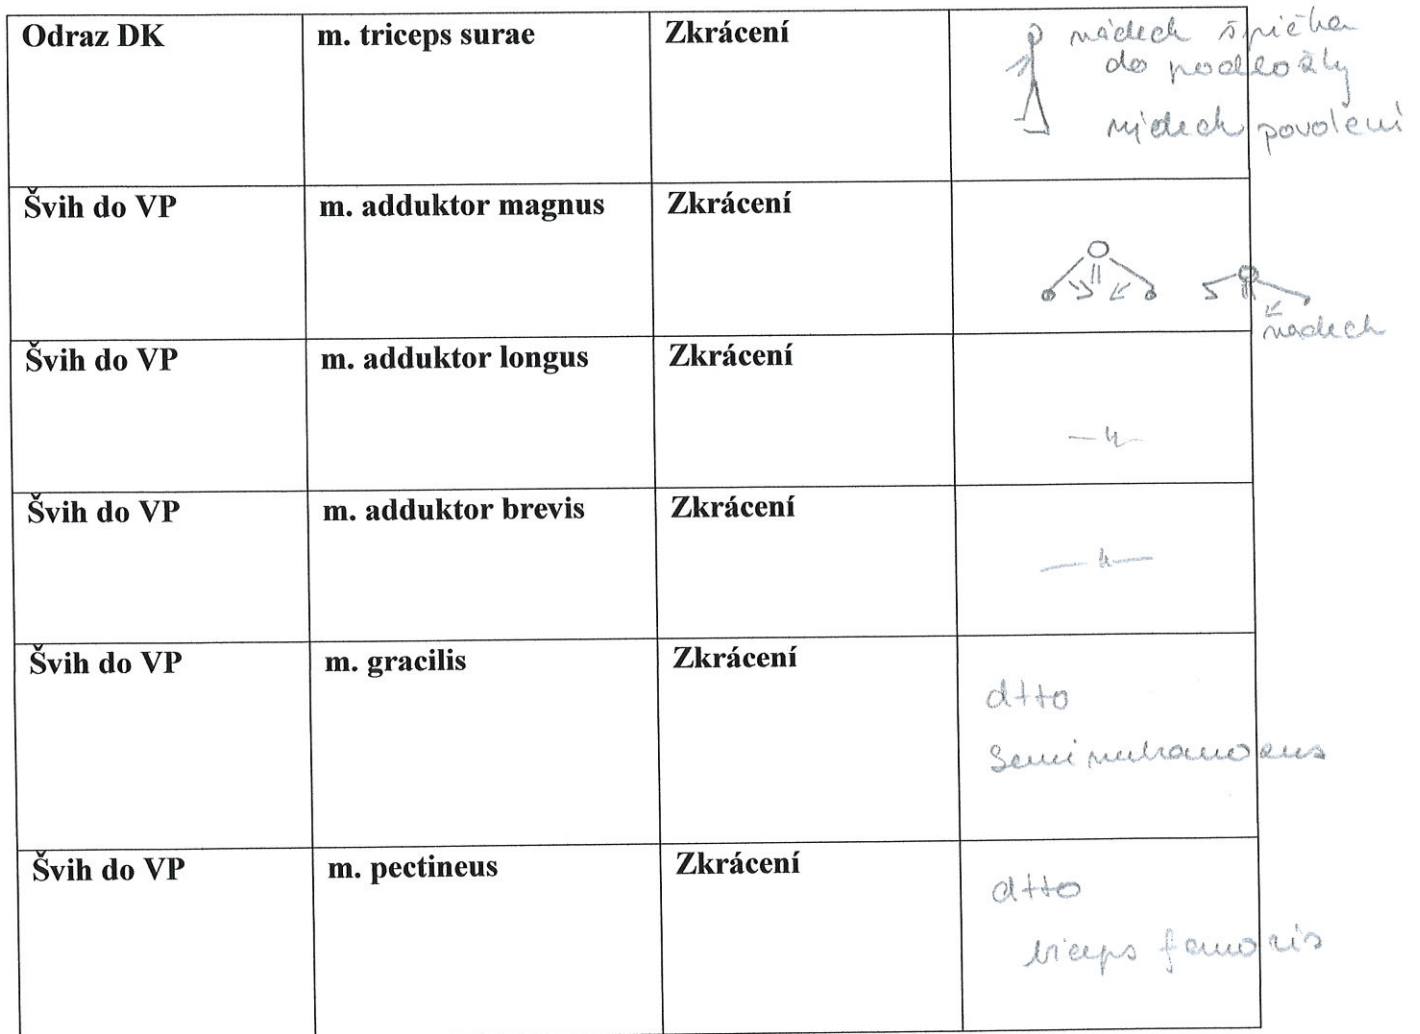 Odraz DK
m. triceps surae
Zkrácení
nádech špička
do podložky
výdech povolení
Švih do VP
m. adduktor magnus
Zkrácení
nádech
Švih do VP
m. adduktor longus
Zkrácení
—"—
Švih do VP
m. adduktor brevis
Zkrácení
—"—
Švih do VP
m. gracilis
Zkrácení
dtto
Semimembranosus
Švih do VP
m. pectineus
Zkrácení
dtto
biceps femoris